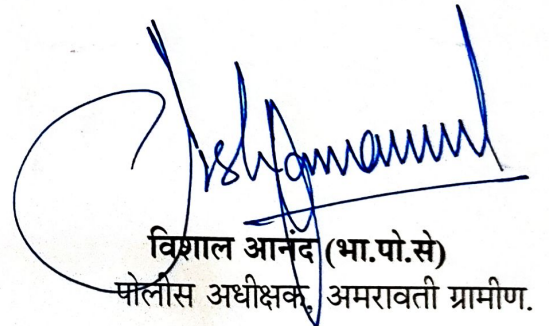 विशाल आनंद (भा.पो.से)
पोलीस अधीक्षक, अमरावती ग्रामीण.